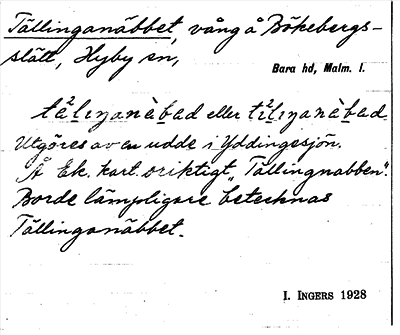 Tällinganäbbet, vång å Bökebergs-
slätt, Hyby sn,
Bara hd, Malm. l.
eller
Utgöres av en udde i Yddingesjön.
Å Ek. kart. oriktigt „Tällingnabben".
Borde lämpligare betecknas
Tällinganäbbet.
I. INGERS 1928